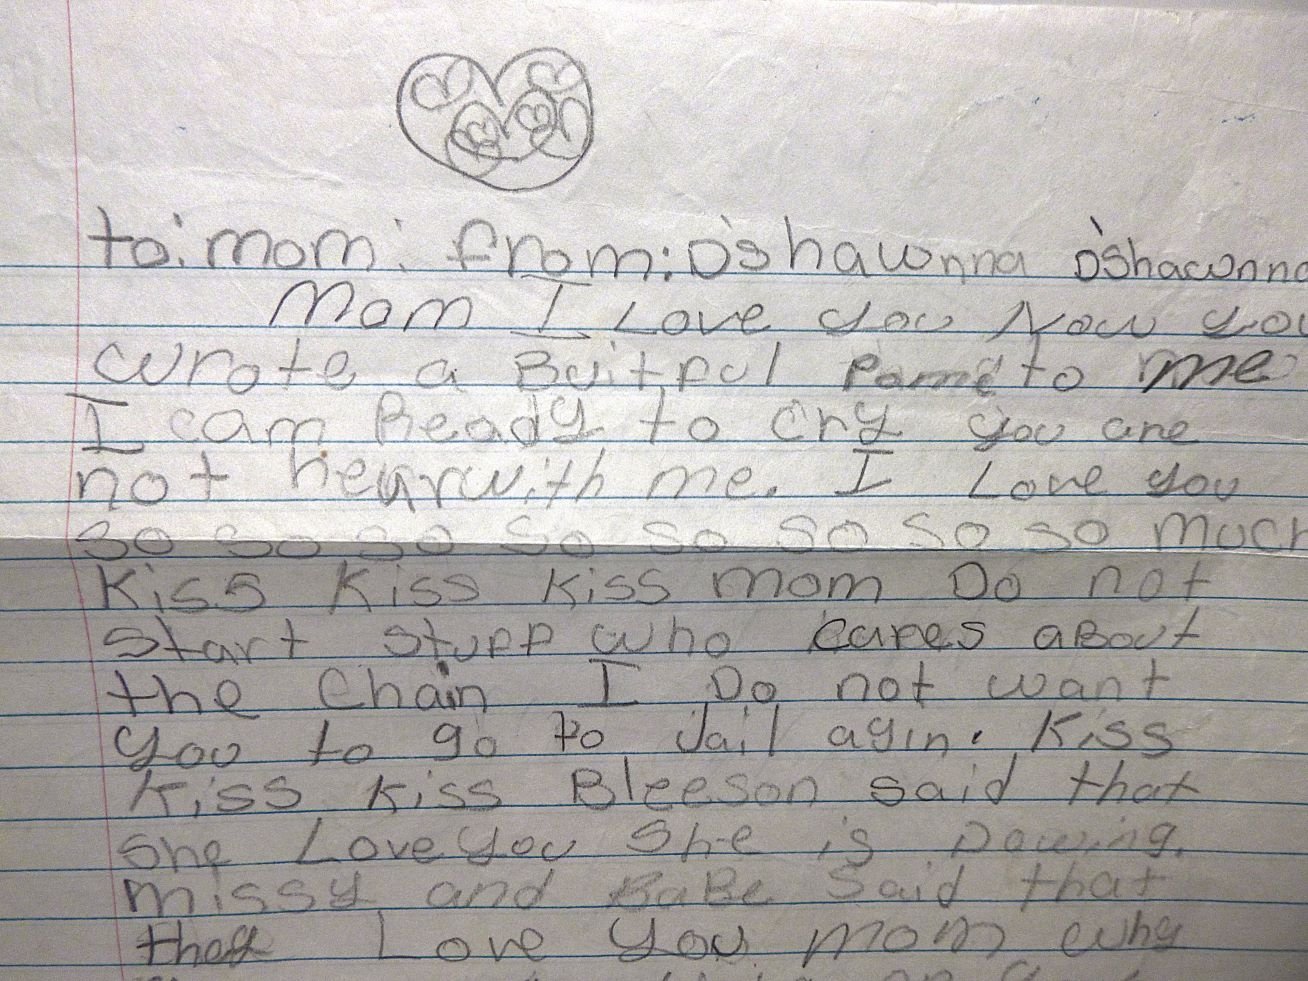 to: mom: from: D'shawnna D'shawnna
Mom I Love you Now you
wrote a Buitful Pame to me
I cam Ready to cry you are
not hear with me. I Love you
so so so so so so so so much
Kiss Kiss Kiss mom Do not
start stuff who cares aBout
the Chain I Do not want
you to go to Jail agin. Kiss
Kiss Kiss Bleeson said that
she Love you She is Dowing.
missy and BaBe Said that
they Love you mom why